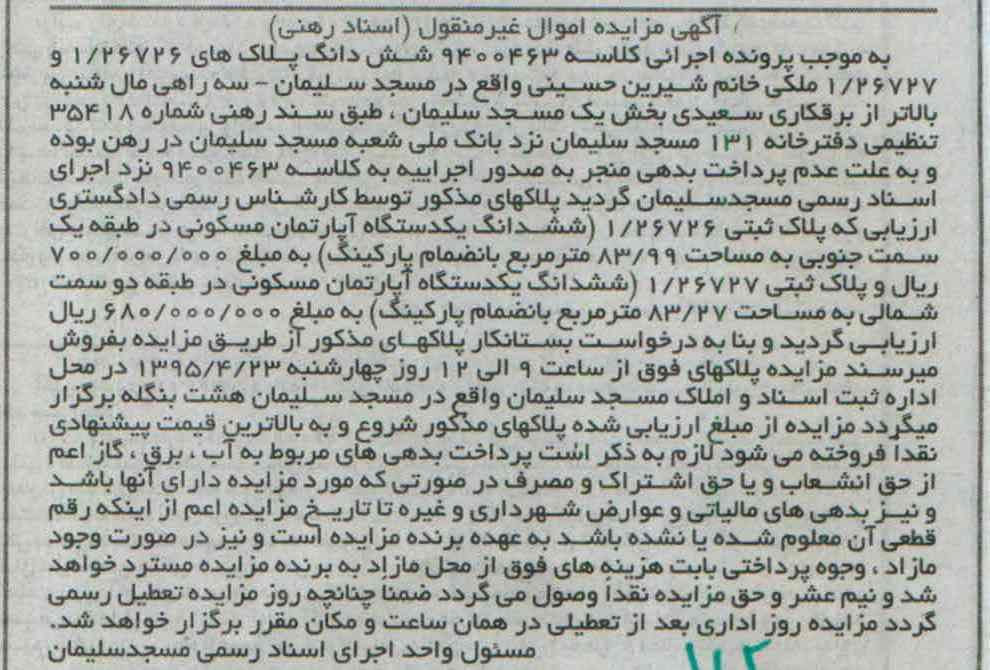 آگهی مزایده اموال غیرمنقول (اسناد رهنی)
به موجب پرونده اجرائی کلاسه ۹۴۰۰۴۶۳ شش دانگ پلاک های ۱/۲۶۷۲۶ و
۱/۲۶۷۲۷ ملکی خانم شیرین حسینی واقع در مسجد سلیمان - سه راهی مال شنبه
بالاتر از برقکاری سعیدی بخش یک مسجد سلیمان ، طبق سند رهنی شماره ۳۵۴۱۸
تنظیمی دفترخانه ۱۳۱ مسجد سلیمان نزد بانک ملی شعبه مسجد سلیمان در رهن بوده
و به علت عدم پرداخت بدهی منجر به صدور اجراییه به کلاسه ۹۴۰۰۴۶۳ نزد اجرای
اسناد رسمی مسجدسلیمان گردید پلاکهای مذکور توسط کارشناس رسمی دادگستری
ارزیابی که پلاک ثبتی ۱/۲۶۷۲۶ (ششدانگ یکدستگاه آپارتمان مسکونی در طبقه یک
سمت جنوبی به مساحت ۸۳/۹۹ مترمربع بانضمام پارکینگ) به مبلغ ۷۰۰/۰۰۰/۰۰۰
ریال و پلاک ثبتی ۱/۲۶۷۲۷ (ششدانگ یکدستگاه آپارتمان مسکونی در طبقه دو سمت
شمالی به مساحت ۸۳/۲۷ مترمربع بانضمام پارکینگ) به مبلغ ۶۸۰/۰۰۰/۰۰۰ ریال
ارزیابی گردید و بنا به درخواست بستانکار پلاکهای مذکور از طریق مزایده بفروش
میرسند مزایده پلاکهای فوق از ساعت ۹ الی ۱۲ روز چهارشنبه ۱۳۹۵/۴/۲۳ در محل
اداره ثبت اسناد و املاک مسجد سلیمان واقع در مسجد سلیمان هشت بنگله برگزار
میگردد مزایده از مبلغ ارزیابی شده پلاکهای مذکور شروع و به بالاترین قیمت پیشنهادی
نقداً فروخته می شود لازم به ذکر است پرداخت بدهی های مربوط به آب ، برق ، گاز اعم
از حق انشعاب و یا حق اشتراک و مصرف در صورتی که مورد مزایده دارای آنها باشد
و نیز بدهی های مالیاتی و عوارض شهرداری و غیره تا تاریخ مزایده اعم از اینکه رقم
قطعی آن معلوم شده یا نشده باشد به عهده برنده مزایده است و نیز در صورت وجود
مازاد ، وجوه پرداختی بابت هزینه های فوق از محل مازاد به برنده مزایده مسترد خواهد
شد و نیم عشر و حق مزایده نقداً وصول می گردد ضمناً چنانچه روز مزایده تعطیل رسمی
گردد مزایده روز اداری بعد از تعطیلی در همان ساعت و مکان مقرر برگزار خواهد شد.
مسئول واحد اجرای اسناد رسمی مسجدسلیمان